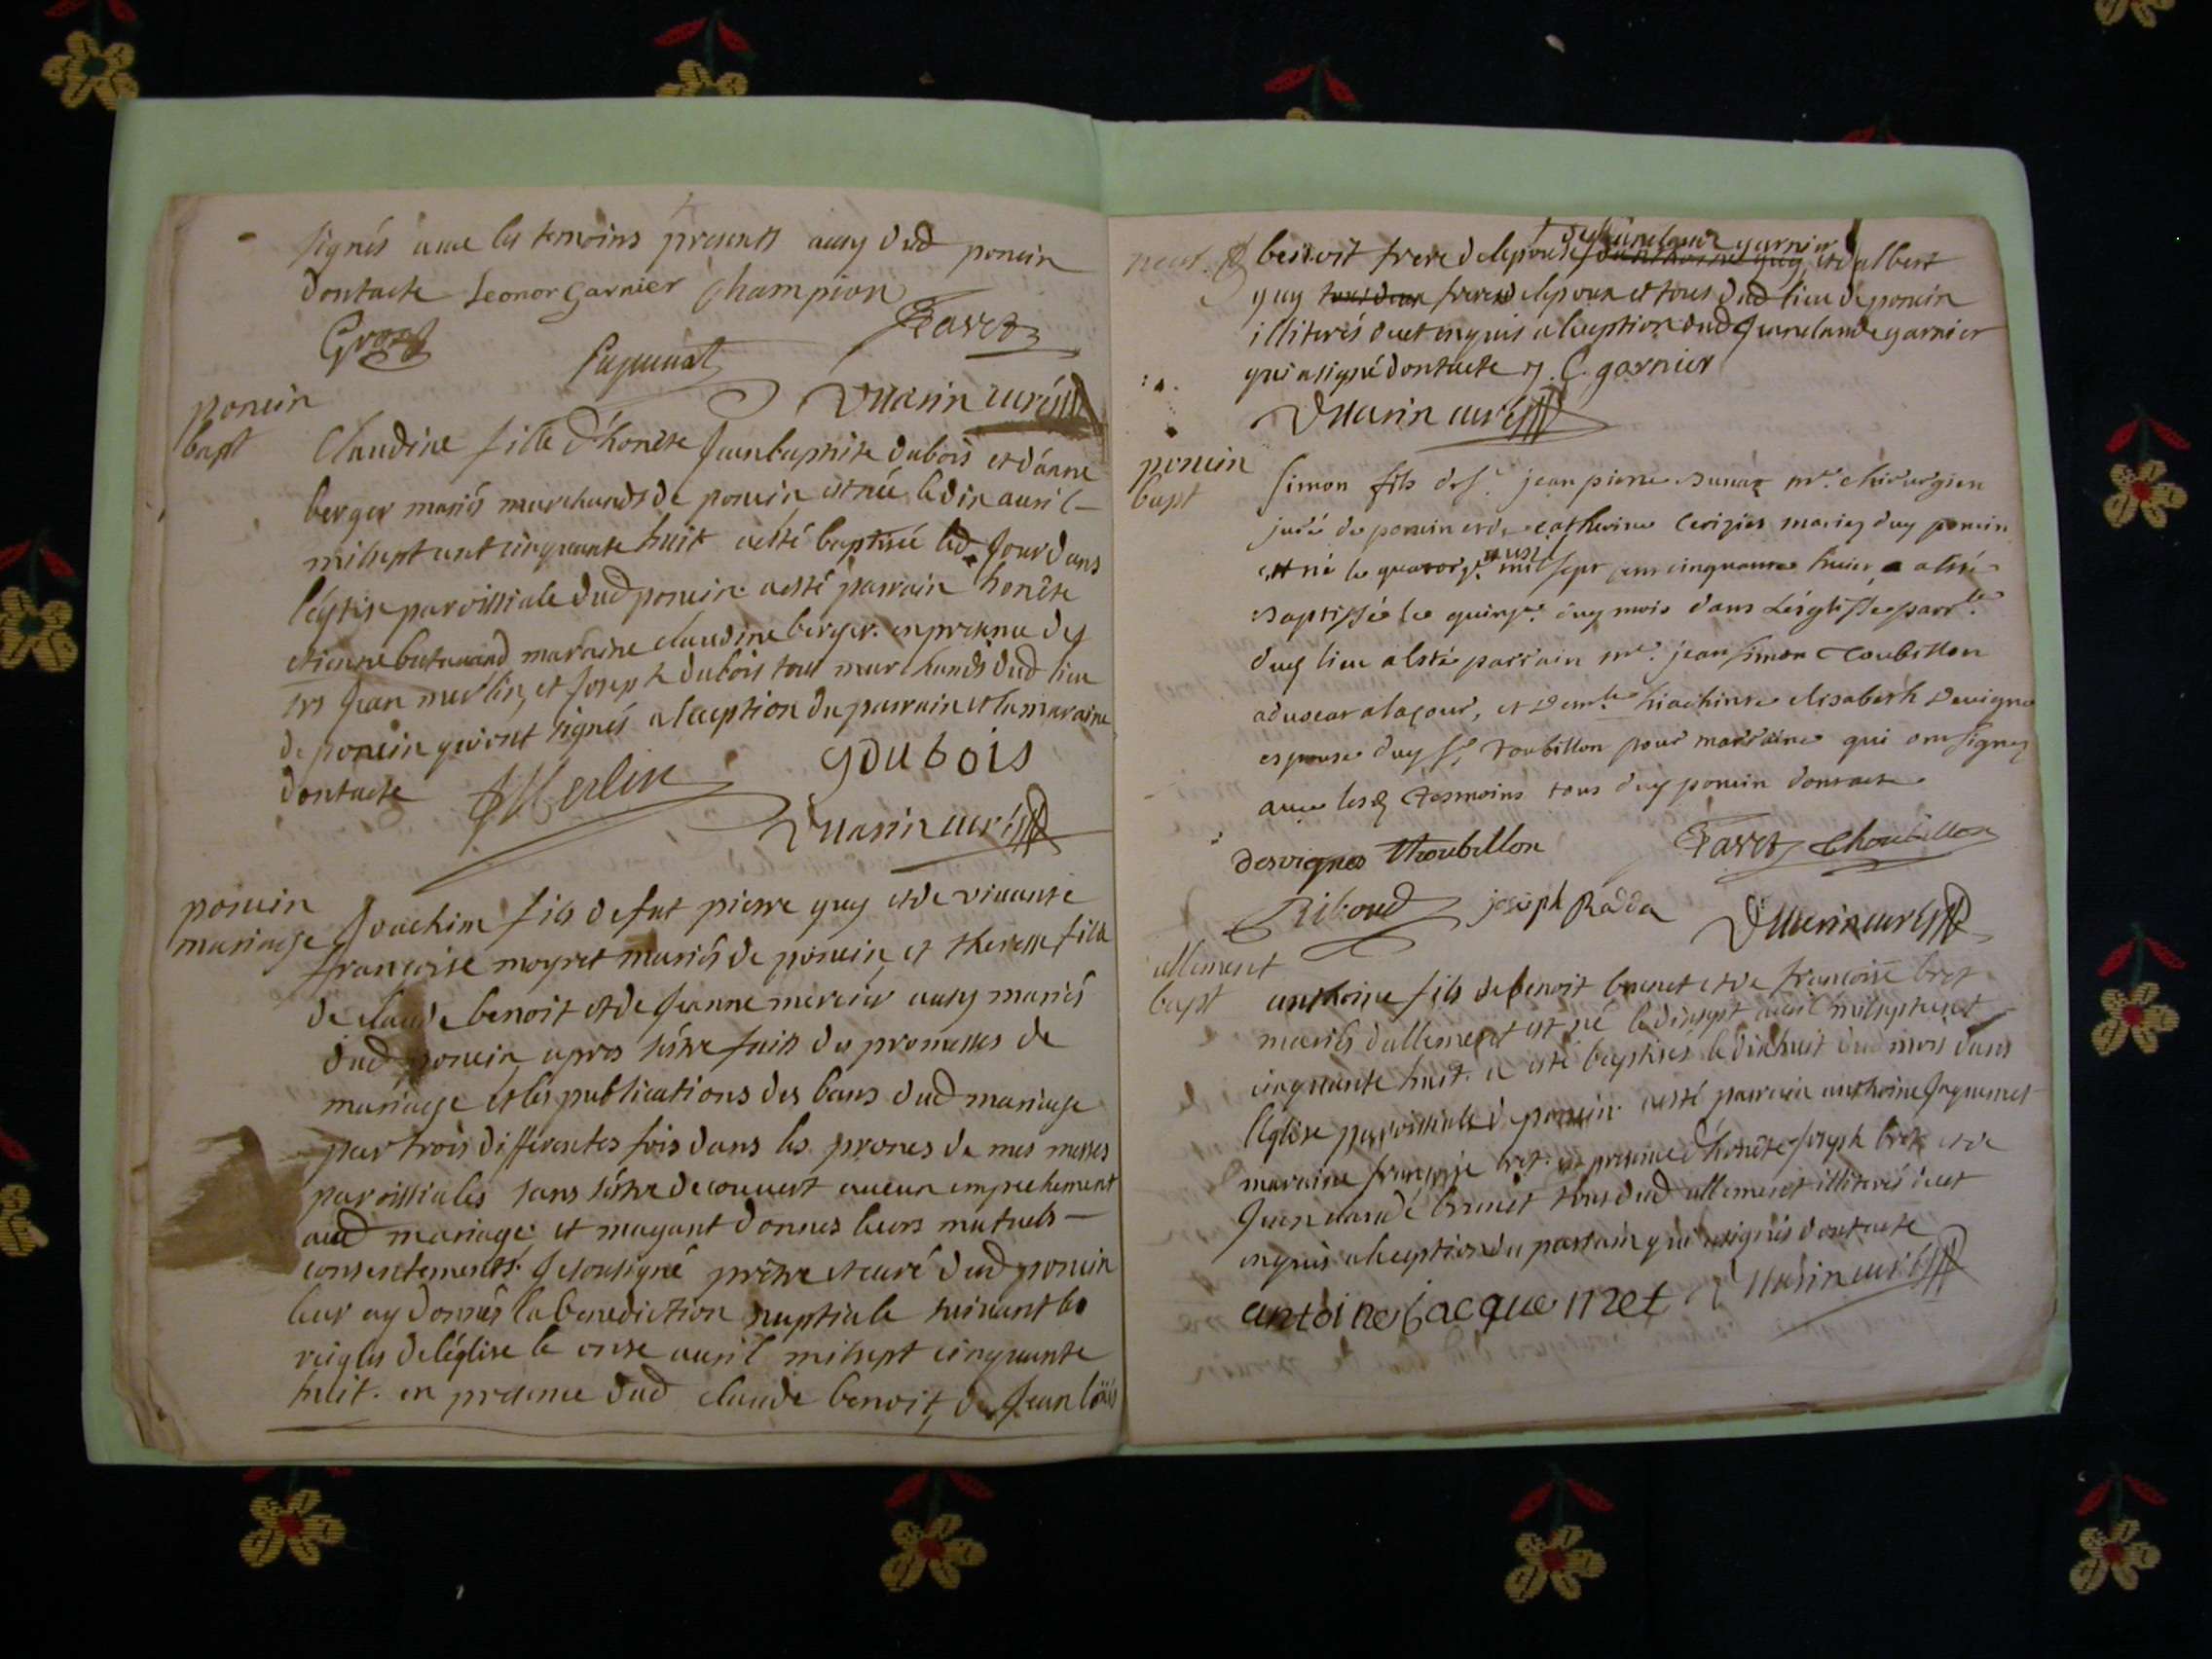 signés avec les temoins presents aussy dud poncin
dontacte Leonor Garnier Champion
Favre
vuarin curé
poncin
bapt
Claudine fille d'honête Jeanbaptiste dubois et d'anne
berger mariés marchands de poncin est née le dix auril
milsept cent cinquante huit a esté baptisée led Jour dans
léglise paroissiale dud poncin. a esté parrain honête
etienne maraine claudine berger. en presence de
Jean merlin, et Joseph dubois tous marchands dud lieu
de poncin qui ont signés a lexeption du parrain et la maraine
dontacte JMerlin
gdubois
vuarin curé
poncin
mariage
Joachim fils de fut pierre guy et de viuante
françoise moyret mariés de poncin, et theresse fille
de claude benoit et de Jeanne mercier aussy mariés
dud poncin apres sêstre faits des promesses de
mariage et les publications des bans dud mariage
par trois differentes fois dans les prones de mes messes
paroissiales sans sêstre decouuert aucun empechement
aud mariage, et mayant donnes leurs mutuels
consentements. Je sousigné prêtre et curé dud poncin
leur ay donnés la benediction nuptiale suiuant les
reigles de léglise le onse auril milsept cinquante
huit. en presence dud claude benoit, de Jean loüis
benoit frere de lepouse, de Jeanclaude garnier et dalbert
guy frere de lepoux et tous dud lieu de poncin
illiterés duet enquis a lexeption dud Jeanclaude garnier
qui a signé dontacte J. C. garnier
vuarin curé
poncin
bapt
Simon fils de sr. jean pierre mr. chirurgien
juré de poncin et de catherine mariez duy poncin
est né le quatorze auril mil sept cens cinquante huict a esté
baptissée le quinze. duy mois dans Lésglisse parr.
duy lieu a esté parrain mr. jean simon Toubillon
aduocat a la cour, et dem.lle hiachinte elisabeth devigne
espouse duy sr. Toubillon pour marraine qui ont signez
auec lesd tesmoins tous duy poncin dontacte
desvignes thoubillon
Favre Thoubillon
Riboud joseph Radda vuarin curé
allement
bapt
anthoine fils de benoit brunet et de françoise bret
mariés dallement est né le dixsept auril milseptcent
cinquante huit. a esté baptisés le dixhuit dud mois dans
léglise paroissiale de poncin. a esté parrain anthoine Jaquemet
maraine françoise bret. en presence d'honête Joseph bret et de
Jeanclaude brunet tous dud allement illiterés duet
enquis a lexeption du parrain qui a signés dontacte
antoine Jacquemet vuarin curé